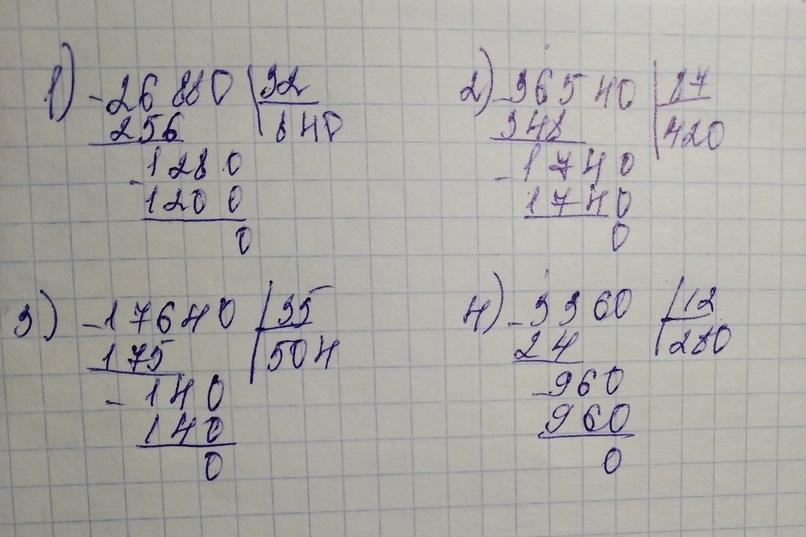 1) -26880 32
256 840
-1280
1200
0
2) -36540 87
348 420
-1740
1740
0
3) -17640 35
175 504
-140
140
0
4) -3360 12
24 280
-960
960
0